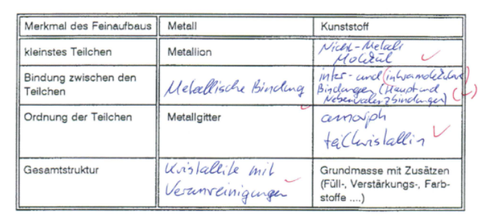 Merkmal des Feinaufbaus Metall Kunststoff
kleinstes Teilchen Metallion Nicht-Metall
Molekül
Bindung zwischen den Teilchen Metallische Bindung inter- und (intramolekulare)
Bindungen (Haupt und
Nebenvalenzbindungen) (✓)
Ordnung der Teilchen Metallgitter amorph
teilkristallin
Gesamtstruktur Kristallite mit
Verunreinigungen Grundmasse mit Zusätzen
(Füll-, Verstärkungs-, Farb-
stoffe ....)